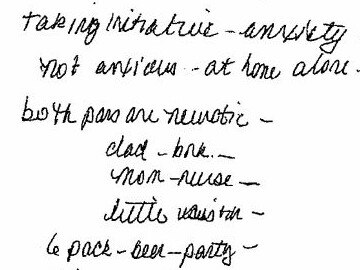 taking initiative - anxiety
not anxious - at home alone -
both pars are neurotic -
dad - bnk. -
mom - nurse -
little
6 pack - beer - party -